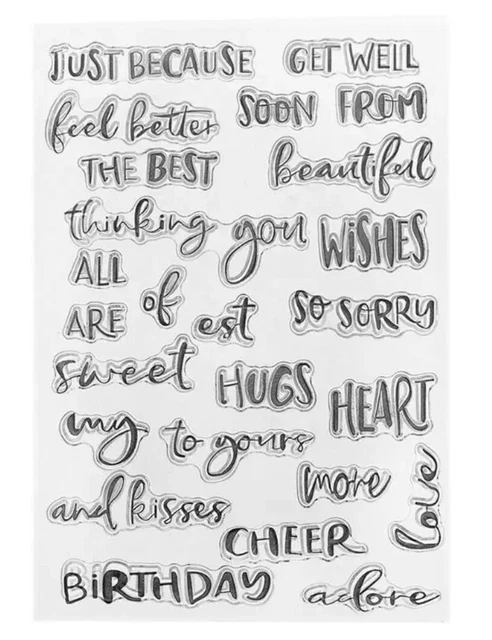 JUST BECAUSE
GET WELL
feel better
SOON
FROM
THE BEST
beautiful
thinking
you
WiSHES
ALL
of
ARE
est
SO SORRY
sweet
HUGS
HEART
my
to yours
more
love
and kisses
CHEER
BiRTHDAY
adore